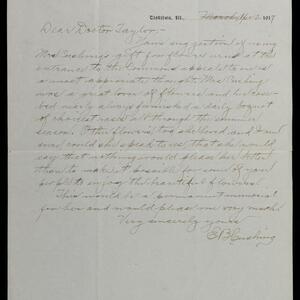 Tiskilwa, Ill. 1917
Dear Doctor Taylor,-
Your suggestion of using
Mrs Cushing's gift for flower urns at the
entrance to the
a most appropriate thought. Mrs Cushing
was a great lover of flowers and her
bed nearly always furnished a daily boquet
of choicest roses all through the summer
season. Other flowers too she loved and I am
sure could she speak to us, that she would
say that nothing would please her better
than to make it possible for some of your
people to enjoy the beautiful flowers.
This would be a permanent memorial
for her and would please me very much.
Very sincerely yours
E B Cushing